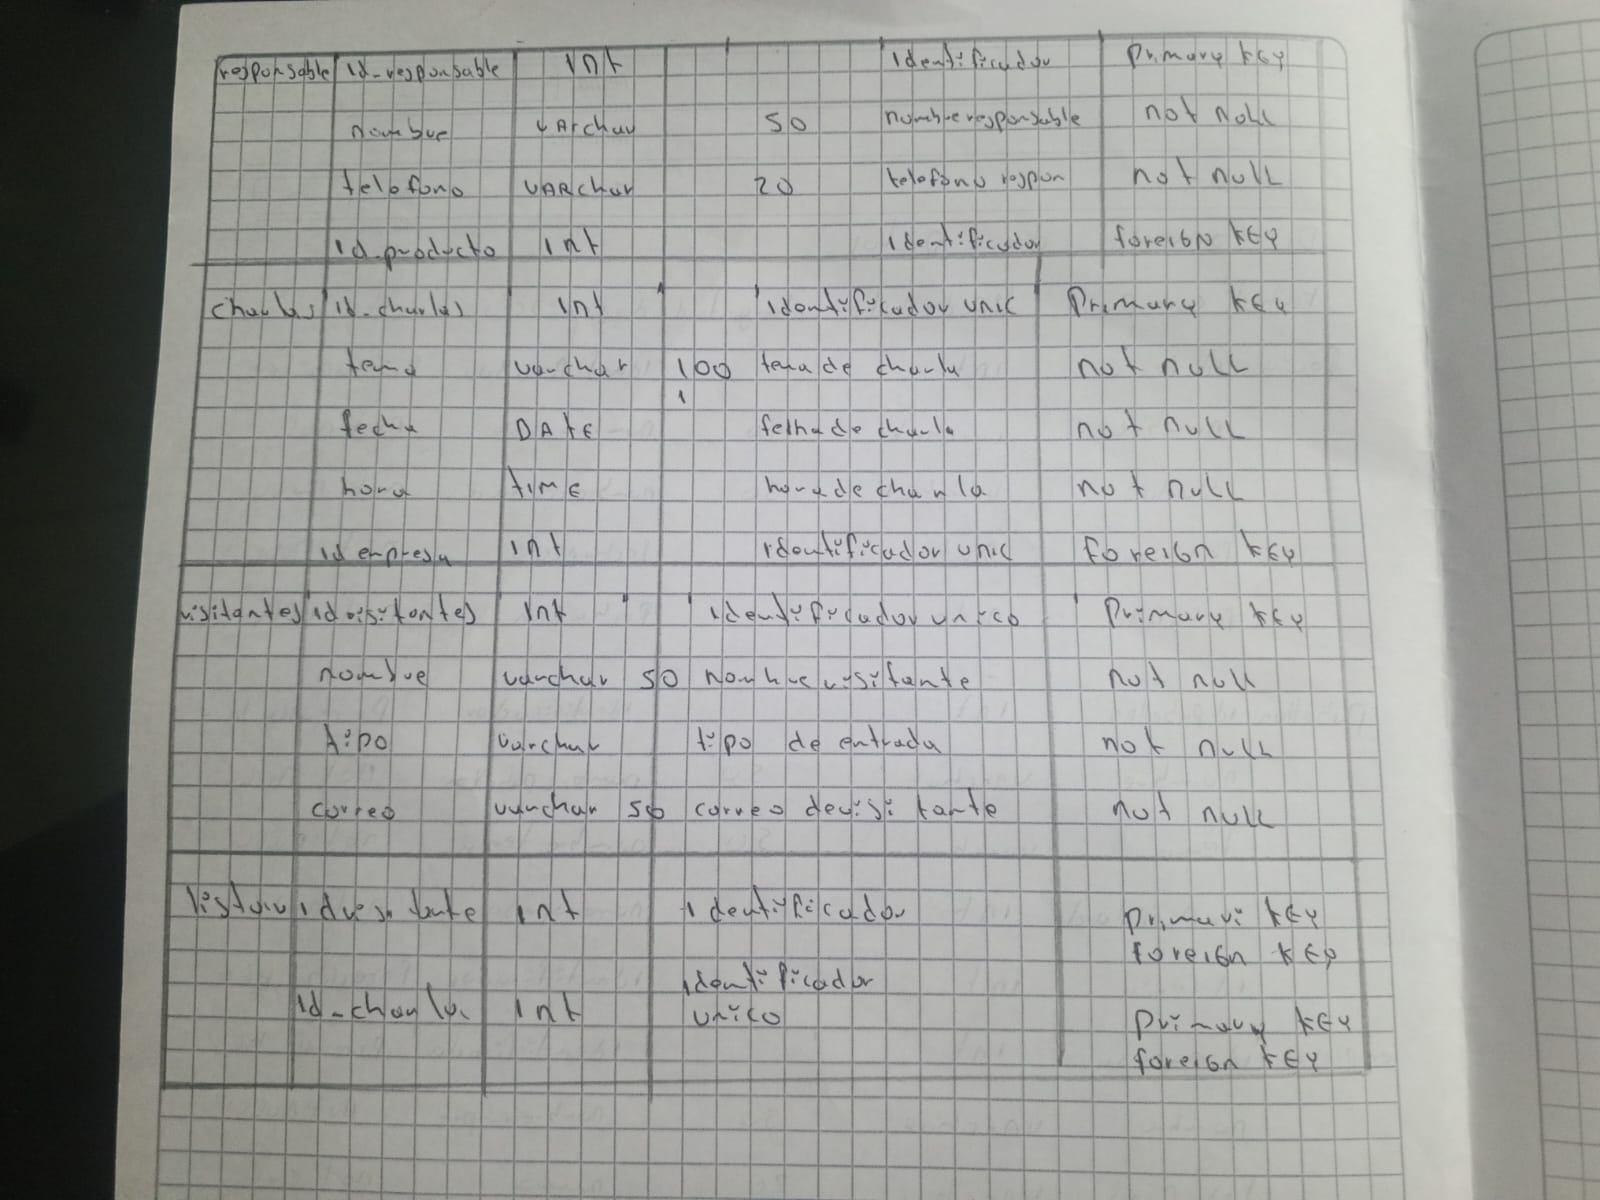 responsable id_responsable int identificador Primary key
nombre varchar 50 nombre responsable not null
telefono varchar 20 telefono respon not null
id_producto int identificador foreign key
charlas id_charlas int identificador unic Primary key
tema varchar 100 tema de charla not null
fecha DATE fecha de charla not null
hora time hora de charla not null
id empresa int identificador unic foreign key
visitantes id visitantes int identificador unico Primary key
nombre varchar 50 nombre visitante not null
tipo varchar tipo de entrada not null
correo varchar 50 correo de visitante not null
int identificador primari key
foreign key
identificador
id_charla int unico primary key
foreign key